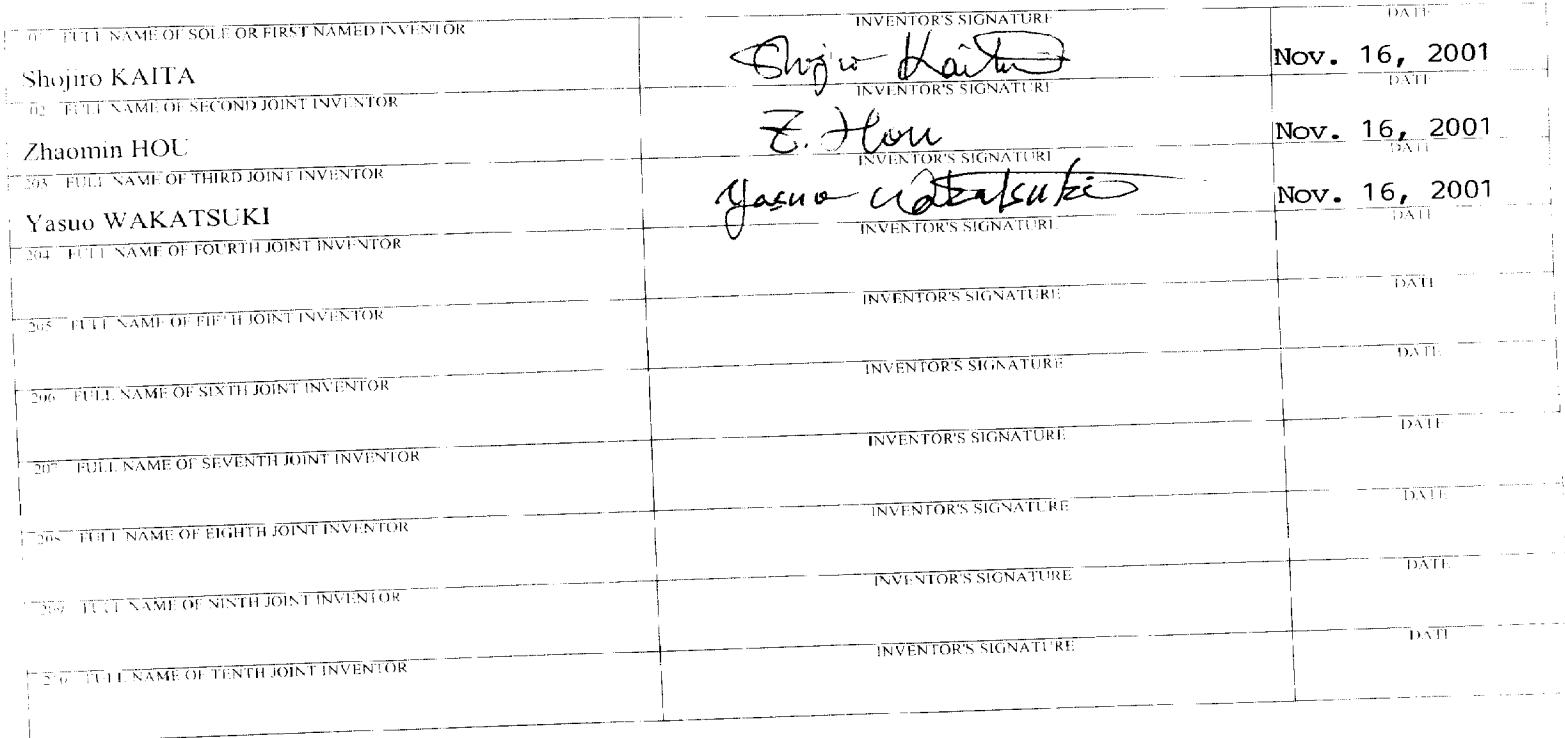 FULL NAME OF SOLE OR FIRST NAMED INVENTOR INVENTOR'S SIGNATURE DATE
Shojiro KAITA Shojiro Kaita Nov. 16, 2001
02 FULL NAME OF SECOND JOINT INVENTOR INVENTOR'S SIGNATURE DATE
Zhaomin HOU Z. Hou Nov. 16, 2001
203 FULL NAME OF THIRD JOINT INVENTOR INVENTOR'S SIGNATURE DATE
Yasuo WAKATSUKI Yasuo Wakatsuki Nov. 16, 2001
204 FULL NAME OF FOURTH JOINT INVENTOR INVENTOR'S SIGNATURE DATE
205 FULL NAME OF FIFTH JOINT INVENTOR INVENTOR'S SIGNATURE DATE
206 FULL NAME OF SIXTH JOINT INVENTOR INVENTOR'S SIGNATURE DATE
207 FULL NAME OF SEVENTH JOINT INVENTOR INVENTOR'S SIGNATURE DATE
208 FULL NAME OF EIGHTH JOINT INVENTOR INVENTOR'S SIGNATURE DATE
209 FULL NAME OF NINTH JOINT INVENTOR INVENTOR'S SIGNATURE DATE
210 FULL NAME OF TENTH JOINT INVENTOR INVENTOR'S SIGNATURE DATE